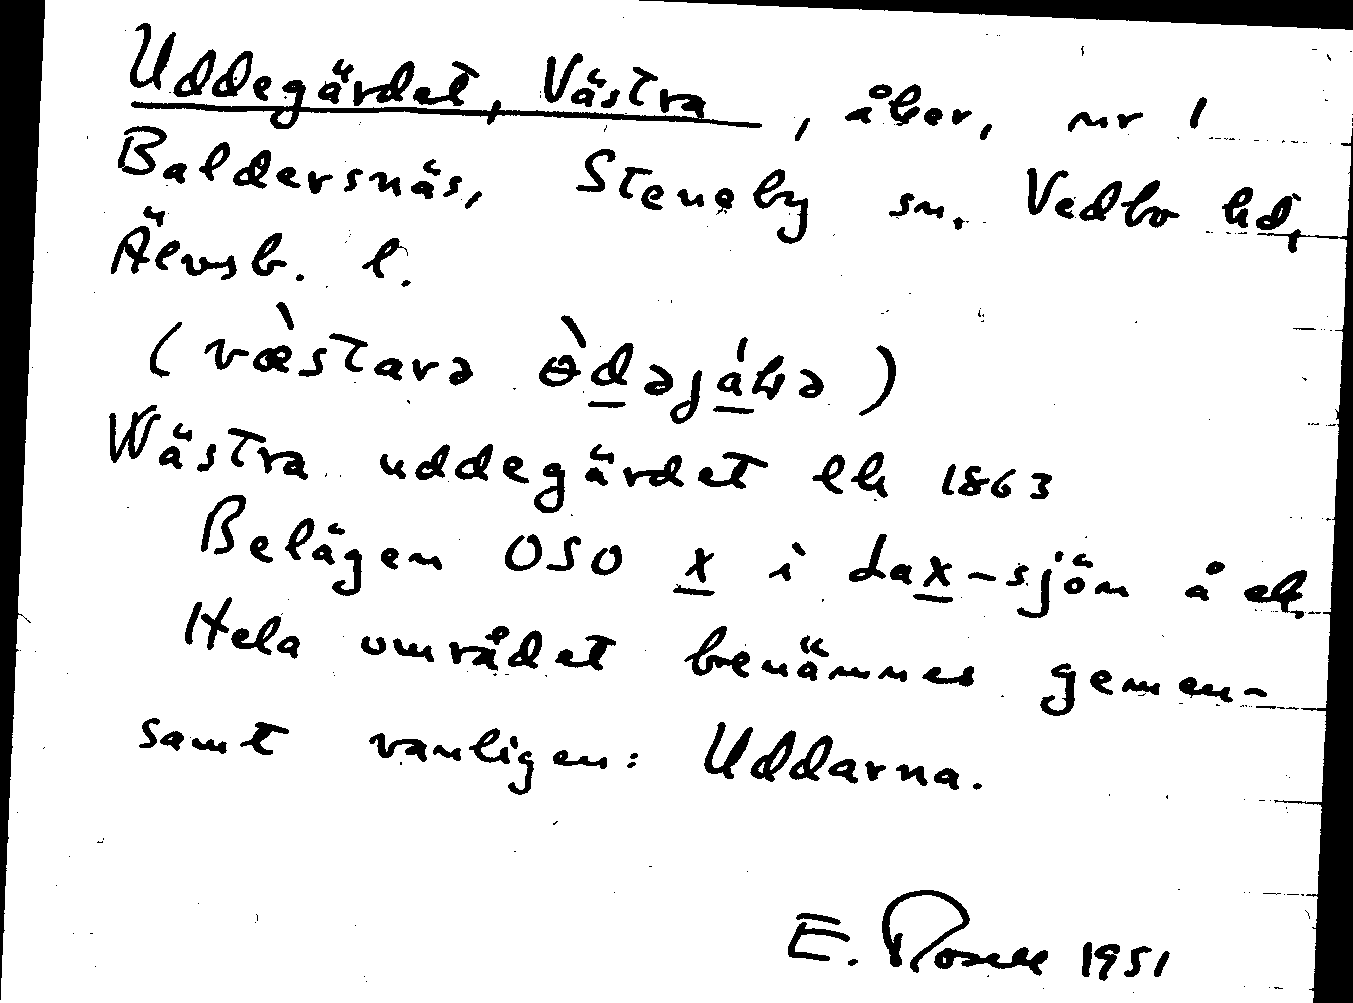 Uddegärdet, Västra, åker, nr 1
Baldersnäs, Steneby sn. Vedbo hd,
Älvsb. l.
Wästra uddegärdet lk 1863
Belägen OSO x i Lax-sjön å ek.
Hela området benämnes gemen-
samt vanligen: Uddarna.
E. Rosell 1951